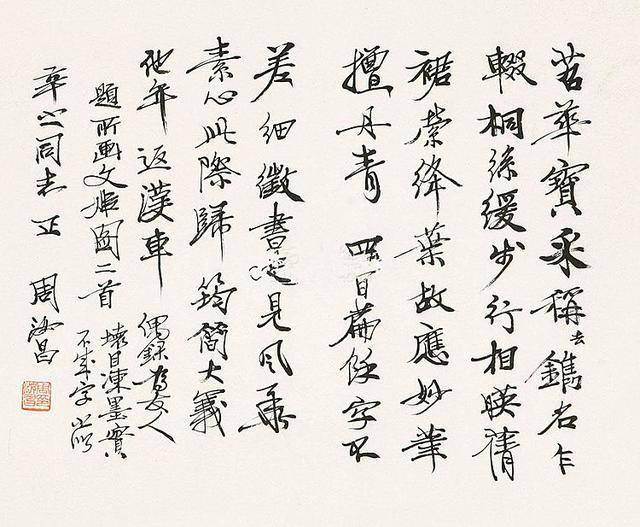 苕華寶采稱去鐫名乍
輟桐絲緩步行相映倩
裾縈絳葉故應妙筆
擅丹青 四百篇餘字不
差細徵書 見風
素心此際歸筠簡大義
他年返漢車 偶錄為友人
題所畫文姬圖二首 壞目凍墨實
不成字
辛心同志正 周汝昌